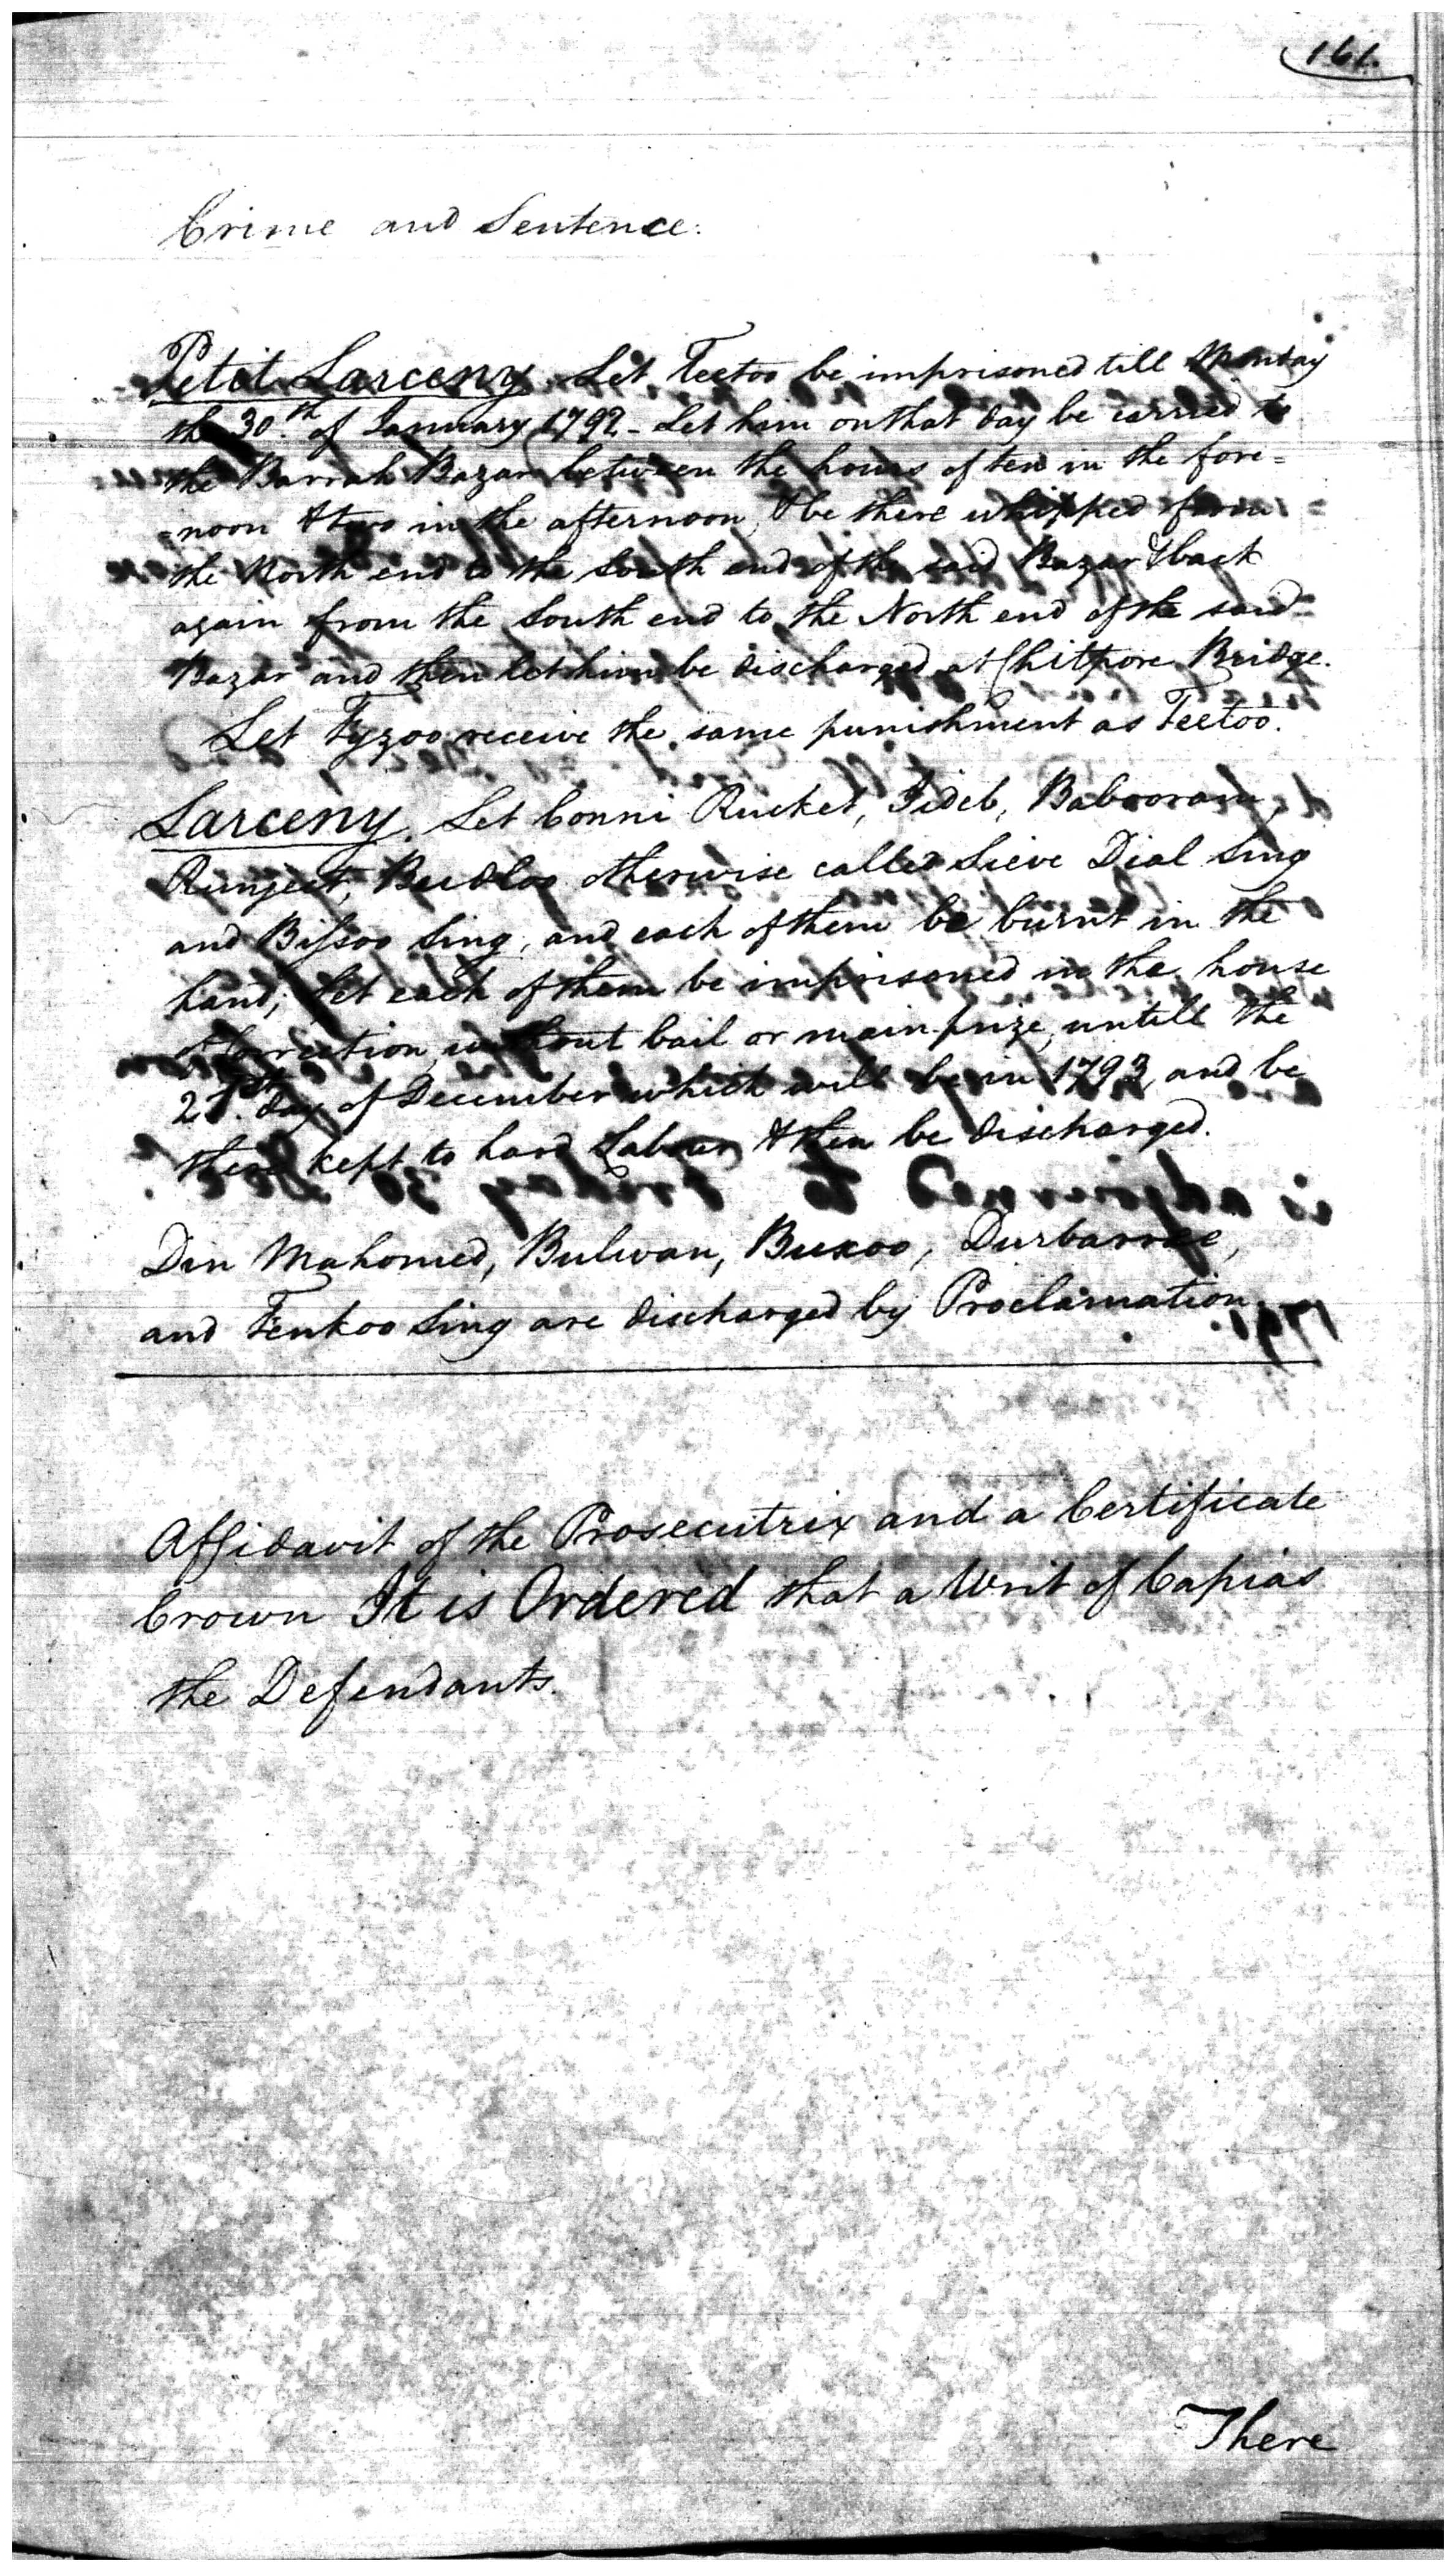 161.
Crime and Sentence.
Petit Larceny. Let Teetoo be imprisoned till Monday
the 30.th of January 1792 - Let him on that day be carried to
the Barrah Bazar between the hours of ten in the fore=
=noon & two in the afternoon, & be there whipped from
the North end to the South end of the said Bazar & back
again from the South end to the North end of the said
Bazar and then let him be discharged at Chitpore Bridge.
Let Fyzoo receive the same punishment as Teetoo.
Larceny. Let Conni Rucket, Jideb, Babooram,
Runjeet, Budloo otherwise called Sieve Dial Sing
and Bissoo Sing, and each of them be burnt in the
hand; Let each of them be imprisoned in the house
of Correction, without bail or mainprize, untill the
21.st day of December which will be in 1793, and be
there kept to hard Labour & then be discharged.
Din Mahomed, Bulwan, Buxoo, Durbarree,
and Fenkoo Sing are discharged by Proclamation.
Affidavit of the Prosecutrix and a Certificate
Crown It is Ordered that a Writ of Capias
the Defendants.
There